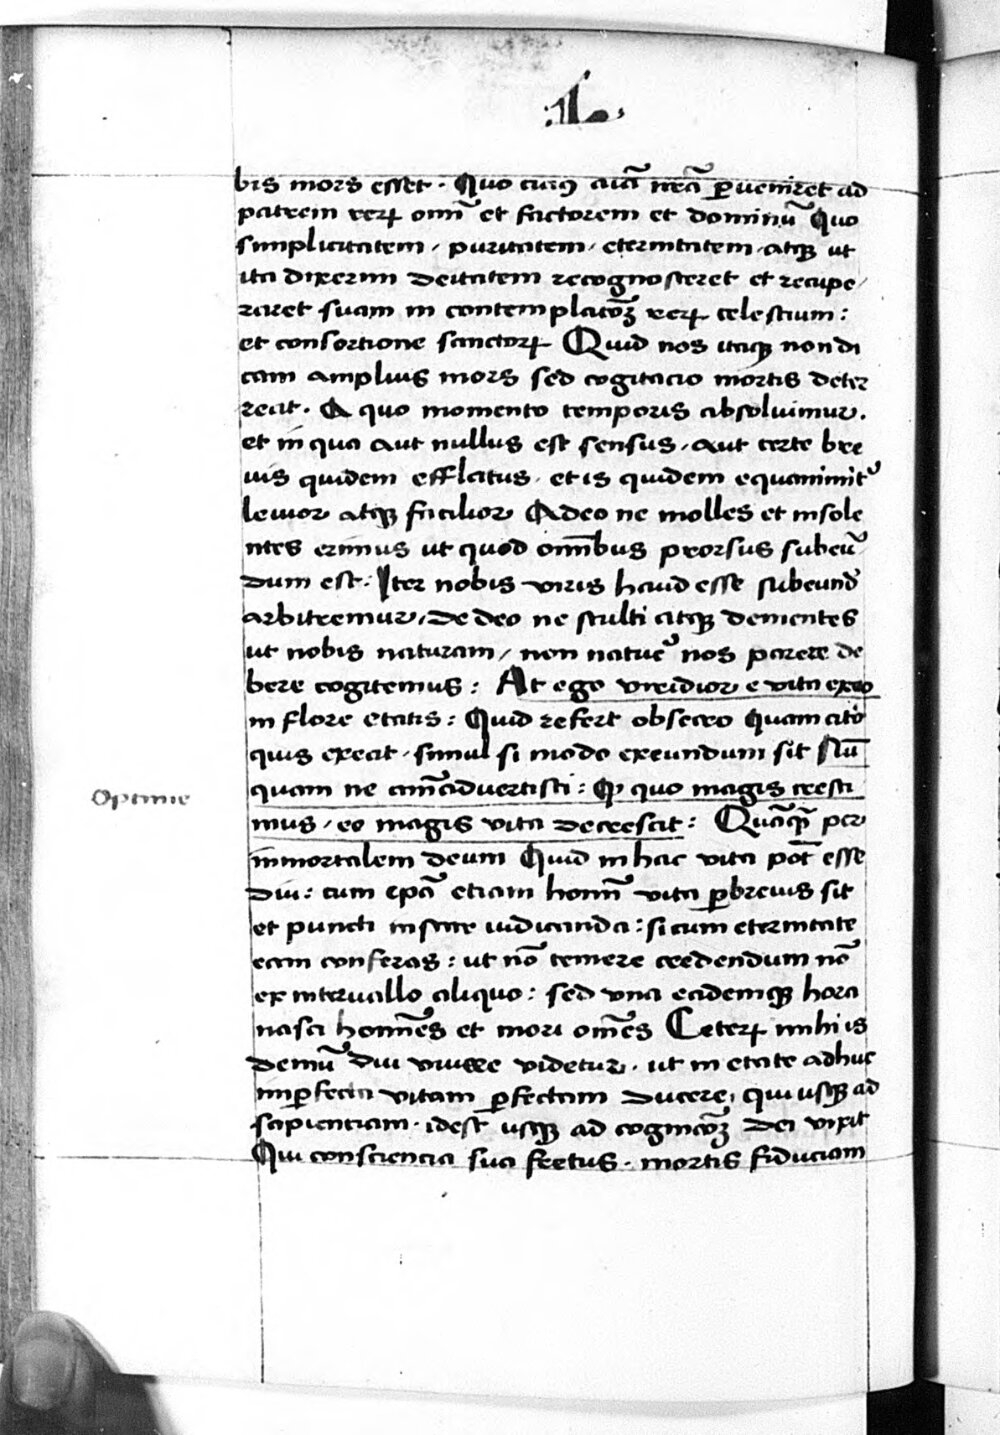 ·L·
bis mors esset · Quo cuiꝰ aīa nr̄a ꝑueniret ad
patrem reꝝ om̄ et factorem et dominū Quo
simplicitatem / puritatem / eternitatem / atqꝫ ut
ita dixerim deitatem recognosceret et recupe/
raret suam in contemplatōꝫ reꝝ celestium :
et consortione sanctoꝝ Quid nos itaqꝫ non di
cam amplius mors sed cogitacio mortis deter
reat · A quo momento temporis absoluimur .
et in quo aut nullus est sensus / aut certe bre
uis quidem efflatus / et is quidem equanimitꝰ
leuior atqꝫ facilior Adeo ne molles et insole
ntes erimus ut quod omībus prorsus subeū/
dum est · Iter nobis viris haud esse subeund
arbitremur / de deo ne stulti atqꝫ dementes
ut nobis naturam / non nature nos parere de
bere cogitemus : At ego viridior e vita exeo
in flore etatis : Quid refert obsecro quam cito
quis exeat · simul si modo exeundum sit Nū
quam ne aīaduertisti : Qꝫ quo magis cresci
mus / eo magis vita decrescit : Quāqꝫ per
Optime
immortalem deum Quid in hac vita pōt esse
diu : cum ip̄a etiam homī vita ꝑbreuis sit
et puncti instar iudicanda : si cum eternitate
eam conferas : ut nō temere credendum nō
ex interuallo aliquo : sed una eademqꝫ hora
nasci homīes et mori om̄es Ceteꝝ mihi is
demū diu viuere videtur · ut in etate adhuc
imꝑfecta vitam ꝑfectam ducere / qui usqꝫ ad
sapientiam · idest usqꝫ ad cognicōꝫ dei vixit
Qui consciencia sua fretus · mortis fiduciam